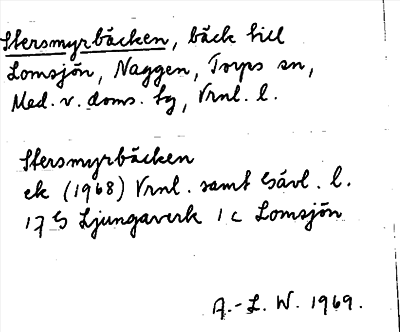 Stersmyrbäcken, bäck till
Lomsjön, Naggen, Torps sn,
Med. v. doms. tg, Vrnl. l.
Stersmyrbäcken
ek (1968) Vrnl. samt Gävl. l.
17 G Ljungaverk 1 c Lomsjön
A.-L. W. 1969.